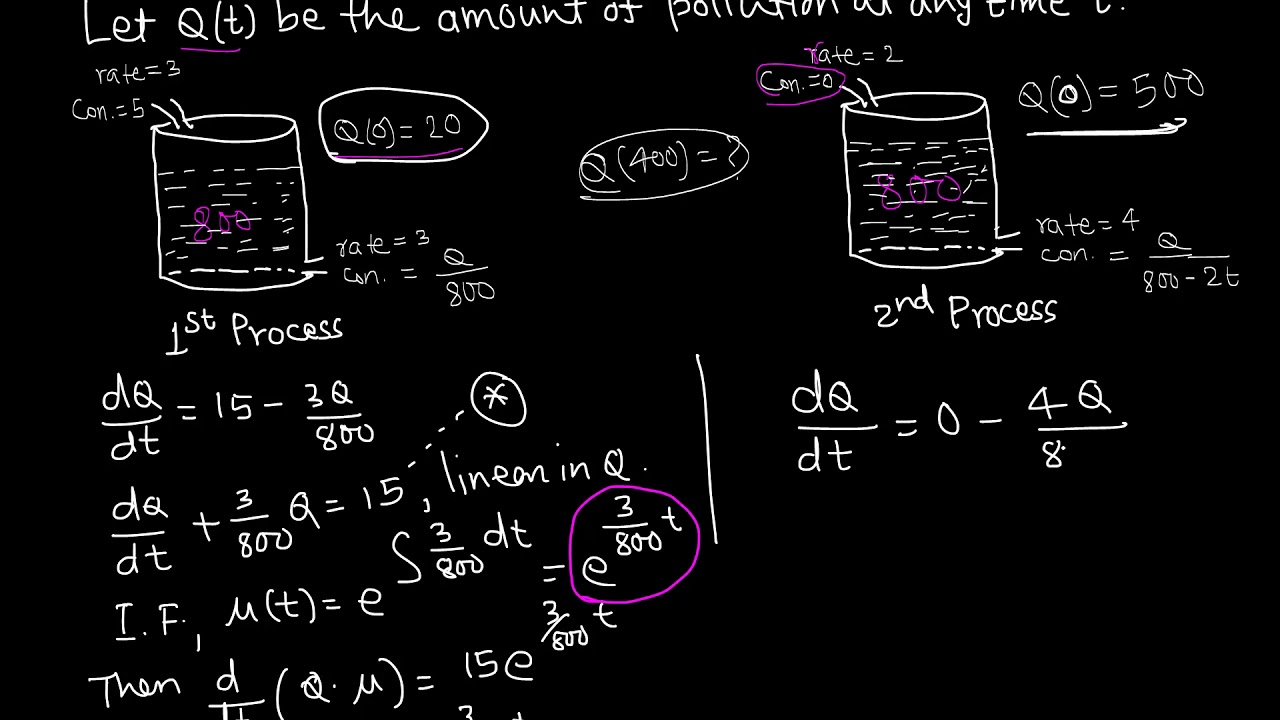 Let Q(t) be the amount of pollution at any time t.
rate = 3
Con. = 5
Q(0) = 20
800
rate = 3
con. = Q/800
1st Process
Q(400) = ?
rate = 2
Con. = 0
Q(0) = 500
800
rate = 4
con. = Q/(800 - 2t)
2nd Process
dQ/dt = 15 - 3Q/800
*
dQ/dt + 3/800 Q = 15, linear in Q.
I.F., μ(t) = e^(∫ 3/800 dt) = e^(3/800 t)
Then d/dt (Q · μ) = 15e^(3/800 t)
dQ/dt = 0 - 4Q/8